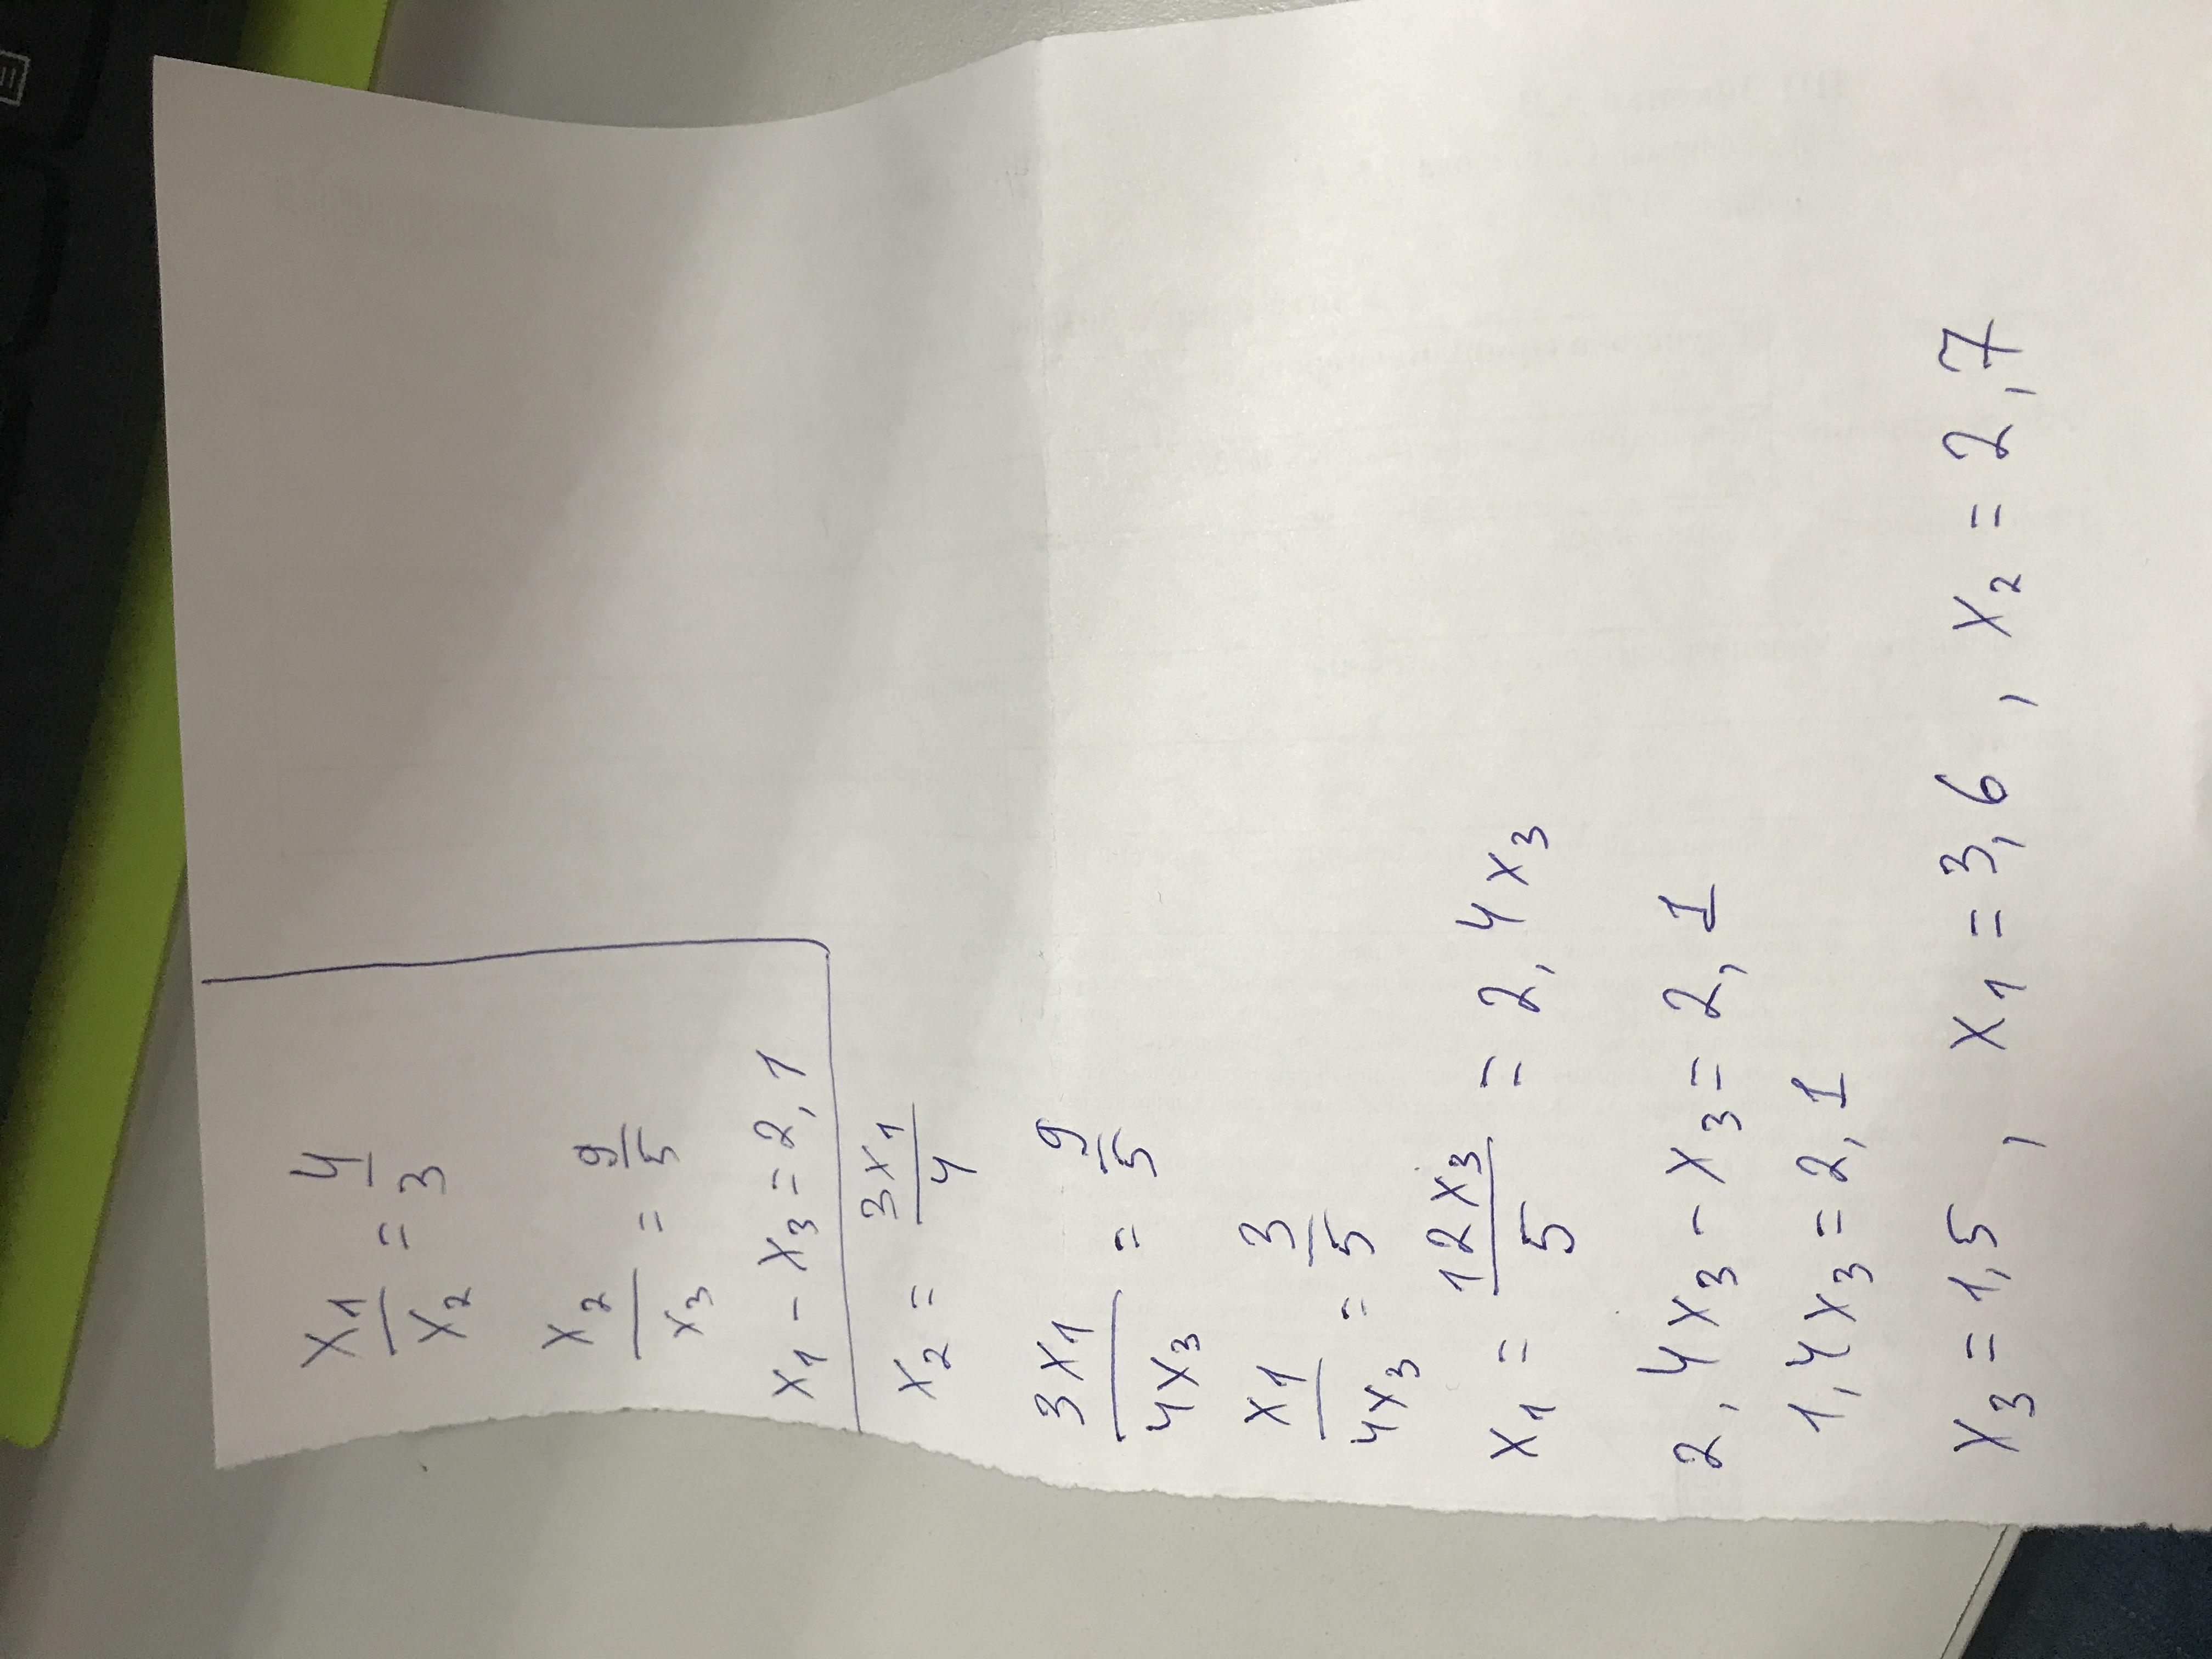 x₁/x₂ = 4/3
x₂/x₃ = 9/5
x₁ - x₃ = 2,1
x₂ = 3x₁/4
3x₁/4x₃ = 9/5
x₁/4x₃ = 3/5
x₁ = 12x₃/5 = 2,4x₃
2,4x₃ - x₃ = 2,1
1,4x₃ = 2,1
x₃ = 1,5 , x₁ = 3,6 , x₂ = 2,7